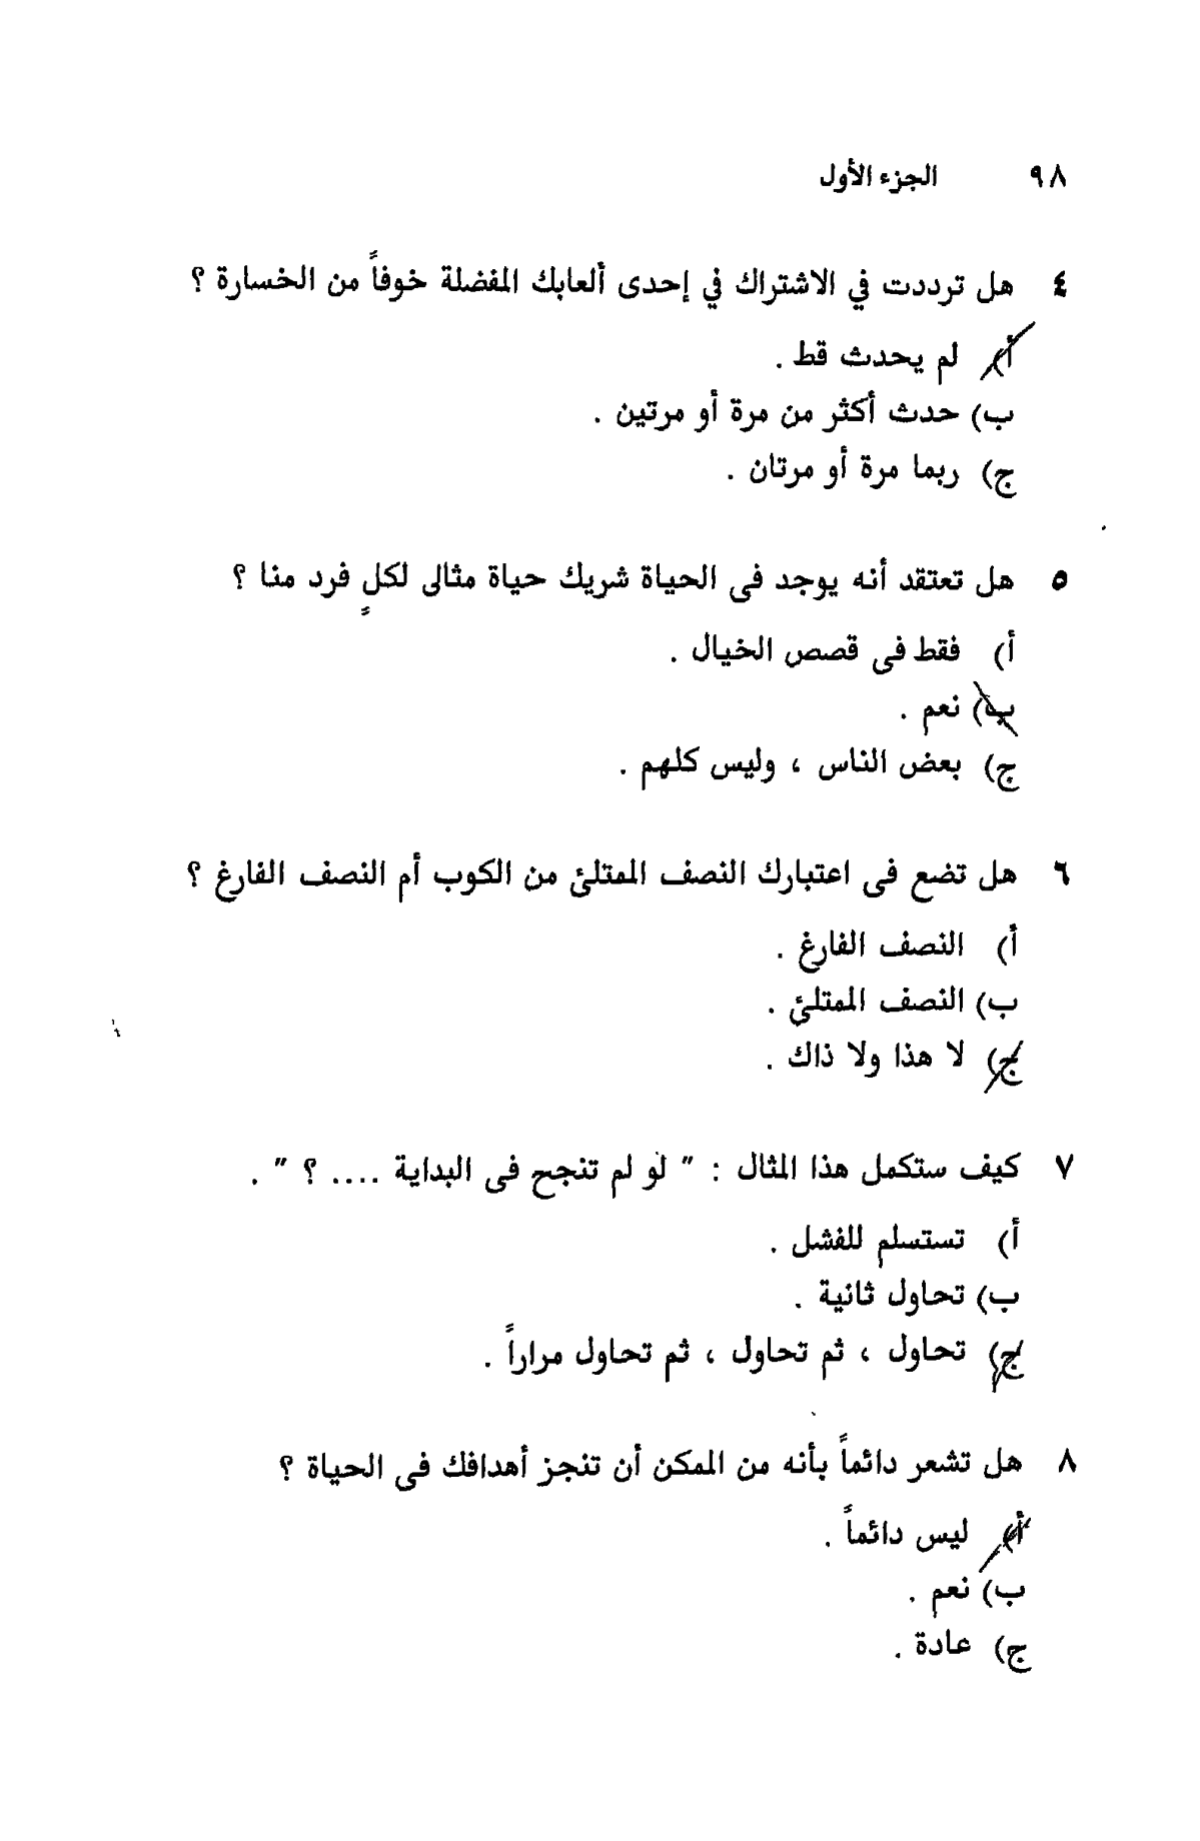 ٩٨ الجزء الأول
٤ هل ترددت في الاشتراك في إحدى ألعابك المفضلة خوفاً من الخسارة ؟
أ) لم يحدث قط .
ب) حدث أكثر من مرة أو مرتين .
ج) ربما مرة أو مرتان .
٥ هل تعتقد أنه يوجد فى الحياة شريك حياة مثالى لكلٍ فرد منا ؟
أ) فقط فى قصص الخيال .
ب) نعم .
ج) بعض الناس ، وليس كلهم .
٦ هل تضع فى اعتبارك النصف الممتلئ من الكوب أم النصف الفارغ ؟
أ) النصف الفارغ .
ب) النصف الممتلئ .
ج) لا هذا ولا ذاك .
٧ كيف ستكمل هذا المثال : " لو لم تنجح فى البداية .... ؟ " .
أ) تستسلم للفشل .
ب) تحاول ثانية .
ج) تحاول ، ثم تحاول ، ثم تحاول مراراً .
٨ هل تشعر دائماً بأنه من الممكن أن تنجز أهدافك فى الحياة ؟
أ) ليس دائماً .
ب) نعم .
ج) عادة .